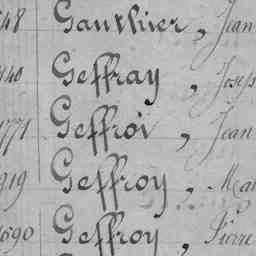 48 Gauthier, Jean
440 Geffray, Joseph
1771 Geffroi, Jean
919 Geffroy, Mat
1690 Geffroy, Pierre